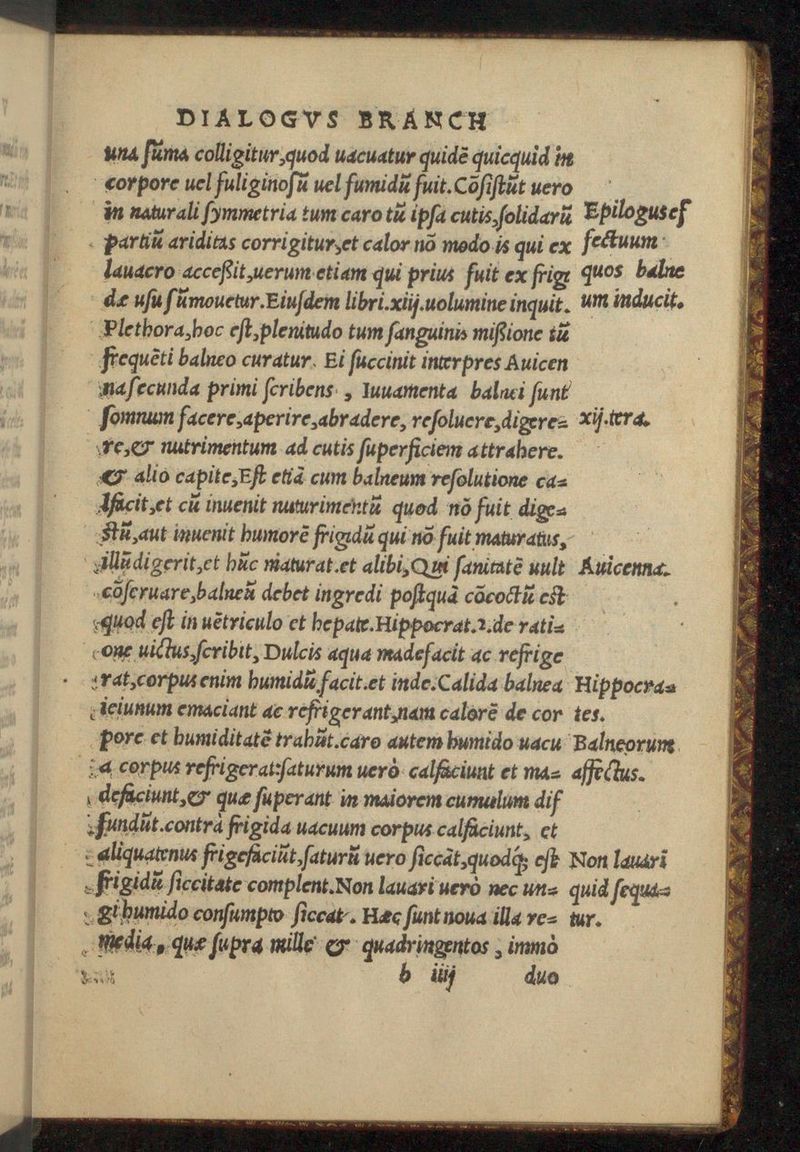 DIALOGVS BRANCH
una sūma colligitur,quod uacuatur quidē quicquid in
corpore uel fuliginosū uel fumidū fuit.Cōsistūt uero
in naturali symmetria tum caro tū ipsa cutis,solidarū
partiū ariditas corrigitur,et calor nō modo is qui ex
lauacro accessit,uerum etiam qui prius fuit ex frigi
dæ usu sūmouetur.Eiusdem libri.xiij.uolumine inquit.
Plethora,hoc est,plenitudo tum sanguinis missione tū
frequēti balneo curatur. Ei succinit interpres Auicen
na secunda primi scribens , Iuuamenta balnei sunt
somnum facere,aperire,abradere, resoluere,digere=
re,& nutrimentum ad cutis superficiem attrahere.
& alio capite,Est etiā cum balneum resolutione ca=
lfacit,et cū inuenit nuturimentū quod nō fuit dige=
stū,aut inuenit humorē frigidū qui nō fuit maturatus,
illū digerit,et hūc maturat.et alibi,Qui sanitatē uult
cōseruare,balneū debet ingredi postquā cōcoctū est
quod est in uētriculo et hepate.Hippocrat.2.de rati=
one uictus,scribit, Dulcis aqua madefacit ac refrige
rat,corpus enim humidū facit.et inde.Calida balnea
ieiunum emaciant ac refrigerant,nam calorē de cor
pore et humiditatē trahūt.caro autem humido uacu
a corpus refrigerat:saturum uerò calfaciunt et ma=
defaciunt,& quæ superant in maiorem cumulum dif
fundūt.contrà frigida uacuum corpus calfaciunt, et
aliquatenus frigefaciūt,saturū uero siccāt,quodq; est
frigidū siccitate complent.Non lauari uerò nec un=
gi humido consumpto siccat. Hæc sunt noua illa re=
media, quæ supra mille & quadringentos , immò
b iiij duo
Epilogus ef
fectuum
quos balne
um inducit.
xij.tera.
Auicenna.
Hippocra=
tes.
Balneorum
affectus.
Non lauari
quid sequa=
tur.